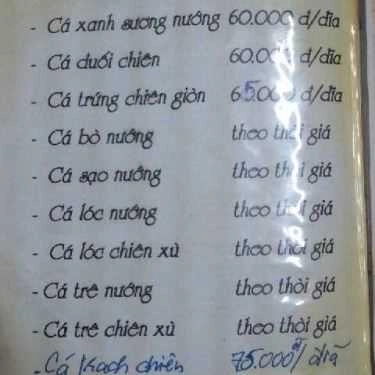 - Cá xanh sương nướng 60.000 đ/dĩa
- Cá đuối chiên 60.000 đ/dĩa
- Cá trứng chiên giòn 65.000 đ/dĩa
- Cá bò nướng theo thời giá
- Cá sạo nướng theo thời giá
- Cá lóc nướng theo thời giá
- Cá lóc chiên xù theo thời giá
- Cá trê nướng theo thời giá
- Cá trê chiên xù theo thời giá
- Cá kạch chiên 75.000đ/dĩa